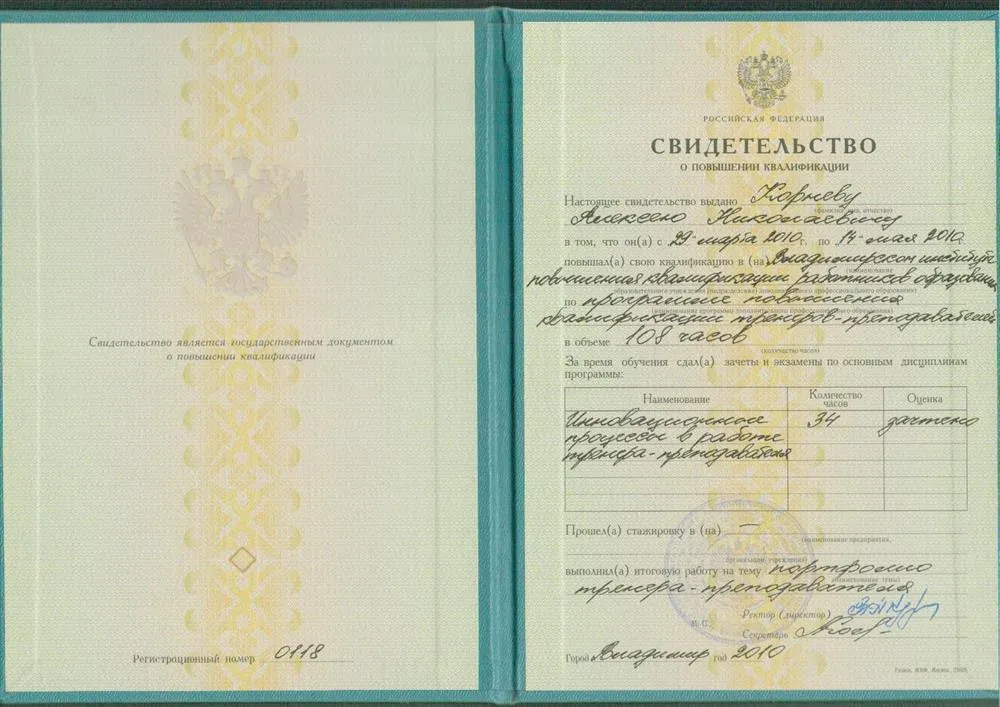 Свидетельство является государственным документом
о повышении квалификации
Регистрационный номер 0118
РОССИЙСКАЯ ФЕДЕРАЦИЯ
СВИДЕТЕЛЬСТВО
О ПОВЫШЕНИИ КВАЛИФИКАЦИИ
Настоящее свидетельство выдано Корневу
(фамилия, имя, отчество)
Алексею Николаевичу
в том, что он(а) с 29 марта 2010г. по 14 мая 2010г.
повышал(а) свою квалификацию в (на) Владимирском институте
(наименование
повышения квалификации работников образования
образовательного учреждения (подразделения) дополнительного профессионального образования)
по программе повышения
(наименование программы дополнительного профессионального образования)
квалификации тренеров-преподавателей
в объеме 108 часов
(количество часов)
За время обучения сдал(а) зачеты и экзамены по основным дисциплинам
программы:
Наименование Количество часов Оценка
Инновационные 34 зачтено
процессы в работе
тренера-преподавателя
Прошел(а) стажировку в (на) —
(наименование предприятия,
организации, учреждения)
выполнил(а) итоговую работу на тему портфолио
(наименование темы)
тренера-преподавателя
Ректор (директор)
М. П.
Секретарь
Город Владимир год 2010